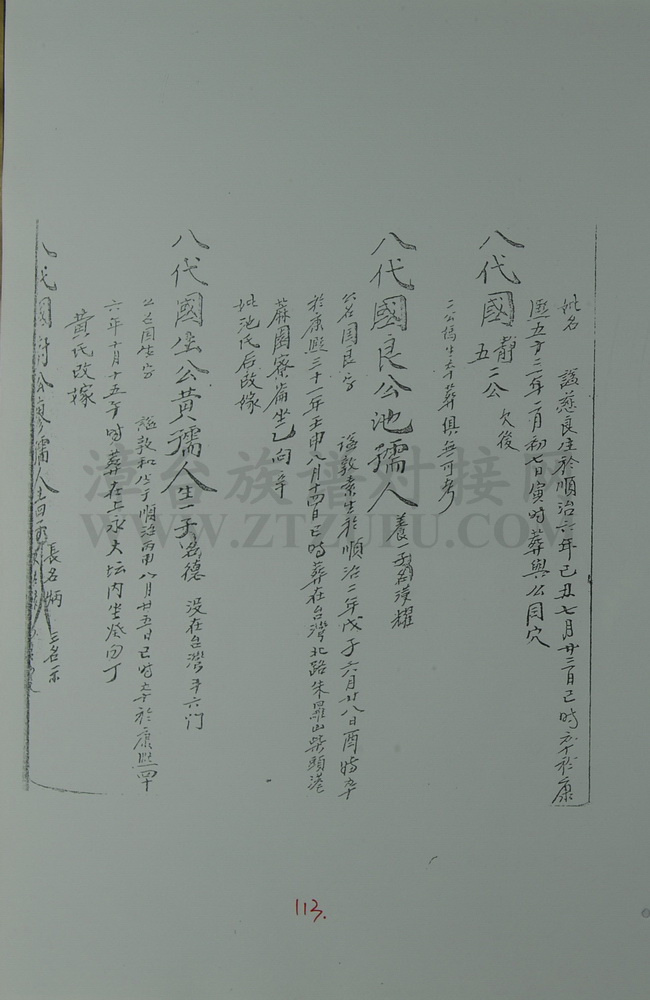 妣名 諡慈良生於順治六年己丑七月廿三日巳時卒於康
熙五十二年二月初七日寅時葬與公同穴
八代國靜五二公 欠後
二公偽生卒葬俱無可考
八代國良公池孺人 養一子名淩耀
公名國良字 諡敦素生於順治二年戊子六月廿八日酉時卒
於康熙三十一年壬申八月十四日巳時葬在台灣北路朱羅山柴頭港
蔴園寮崙坐乙向辛
妣池氏后改嫁
八代國坐公黃孺人生一子名德 没在台灣平六门
公名國坐字 諡敦和公于順治丙申八月廿五日巳時卒於康熙四十
六年十月十五午時葬在上永大坛内坐癸向丁
黃氏改嫁
八代國 公廖孺人 長名炳 三名示
漳台族谱对接网
WWW.ZTZUPU.COM
113.